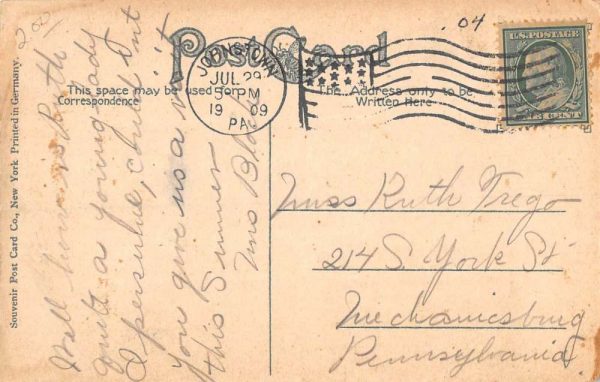 Post Card
This space may be used for
Correspondence
The Address only to be
Written Here
JOHNSTOWN
JUL 29
5 PM
1909
PA.
U.S. POSTAGE
ONE CENT
.04
Souvenir Post Card Co., New York Printed in Germany.
Well how is Ruth
quite a young lady
I persume, could'nt
you give us a visit
this Summer
Mrs
Miss Ruth Trego
214 S. York St
Mechanicsburg
Pennsylvania